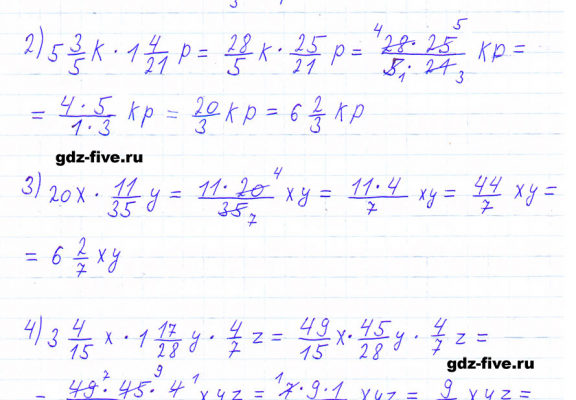 2) 5 3/5 k · 1 4/21 p = 28/5 k · 25/21 p = 28 · 25/5 · 21 kp =
= 4 · 5/1 · 3 kp = 20/3 kp = 6 2/3 kp
gdz-five.ru
3) 20x · 11/35 y = 11 · 20/35 xy = 11 · 4/7 xy = 44/7 xy =
= 6 2/7 xy
4) 3 4/15 x · 1 17/28 y · 4/7 z = 49/15 x · 45/28 y · 4/7 z =
gdz-five.ru
= 49 · 45 · 4 xyz = 7 · 9 · 1 xyz = 9 xyz =